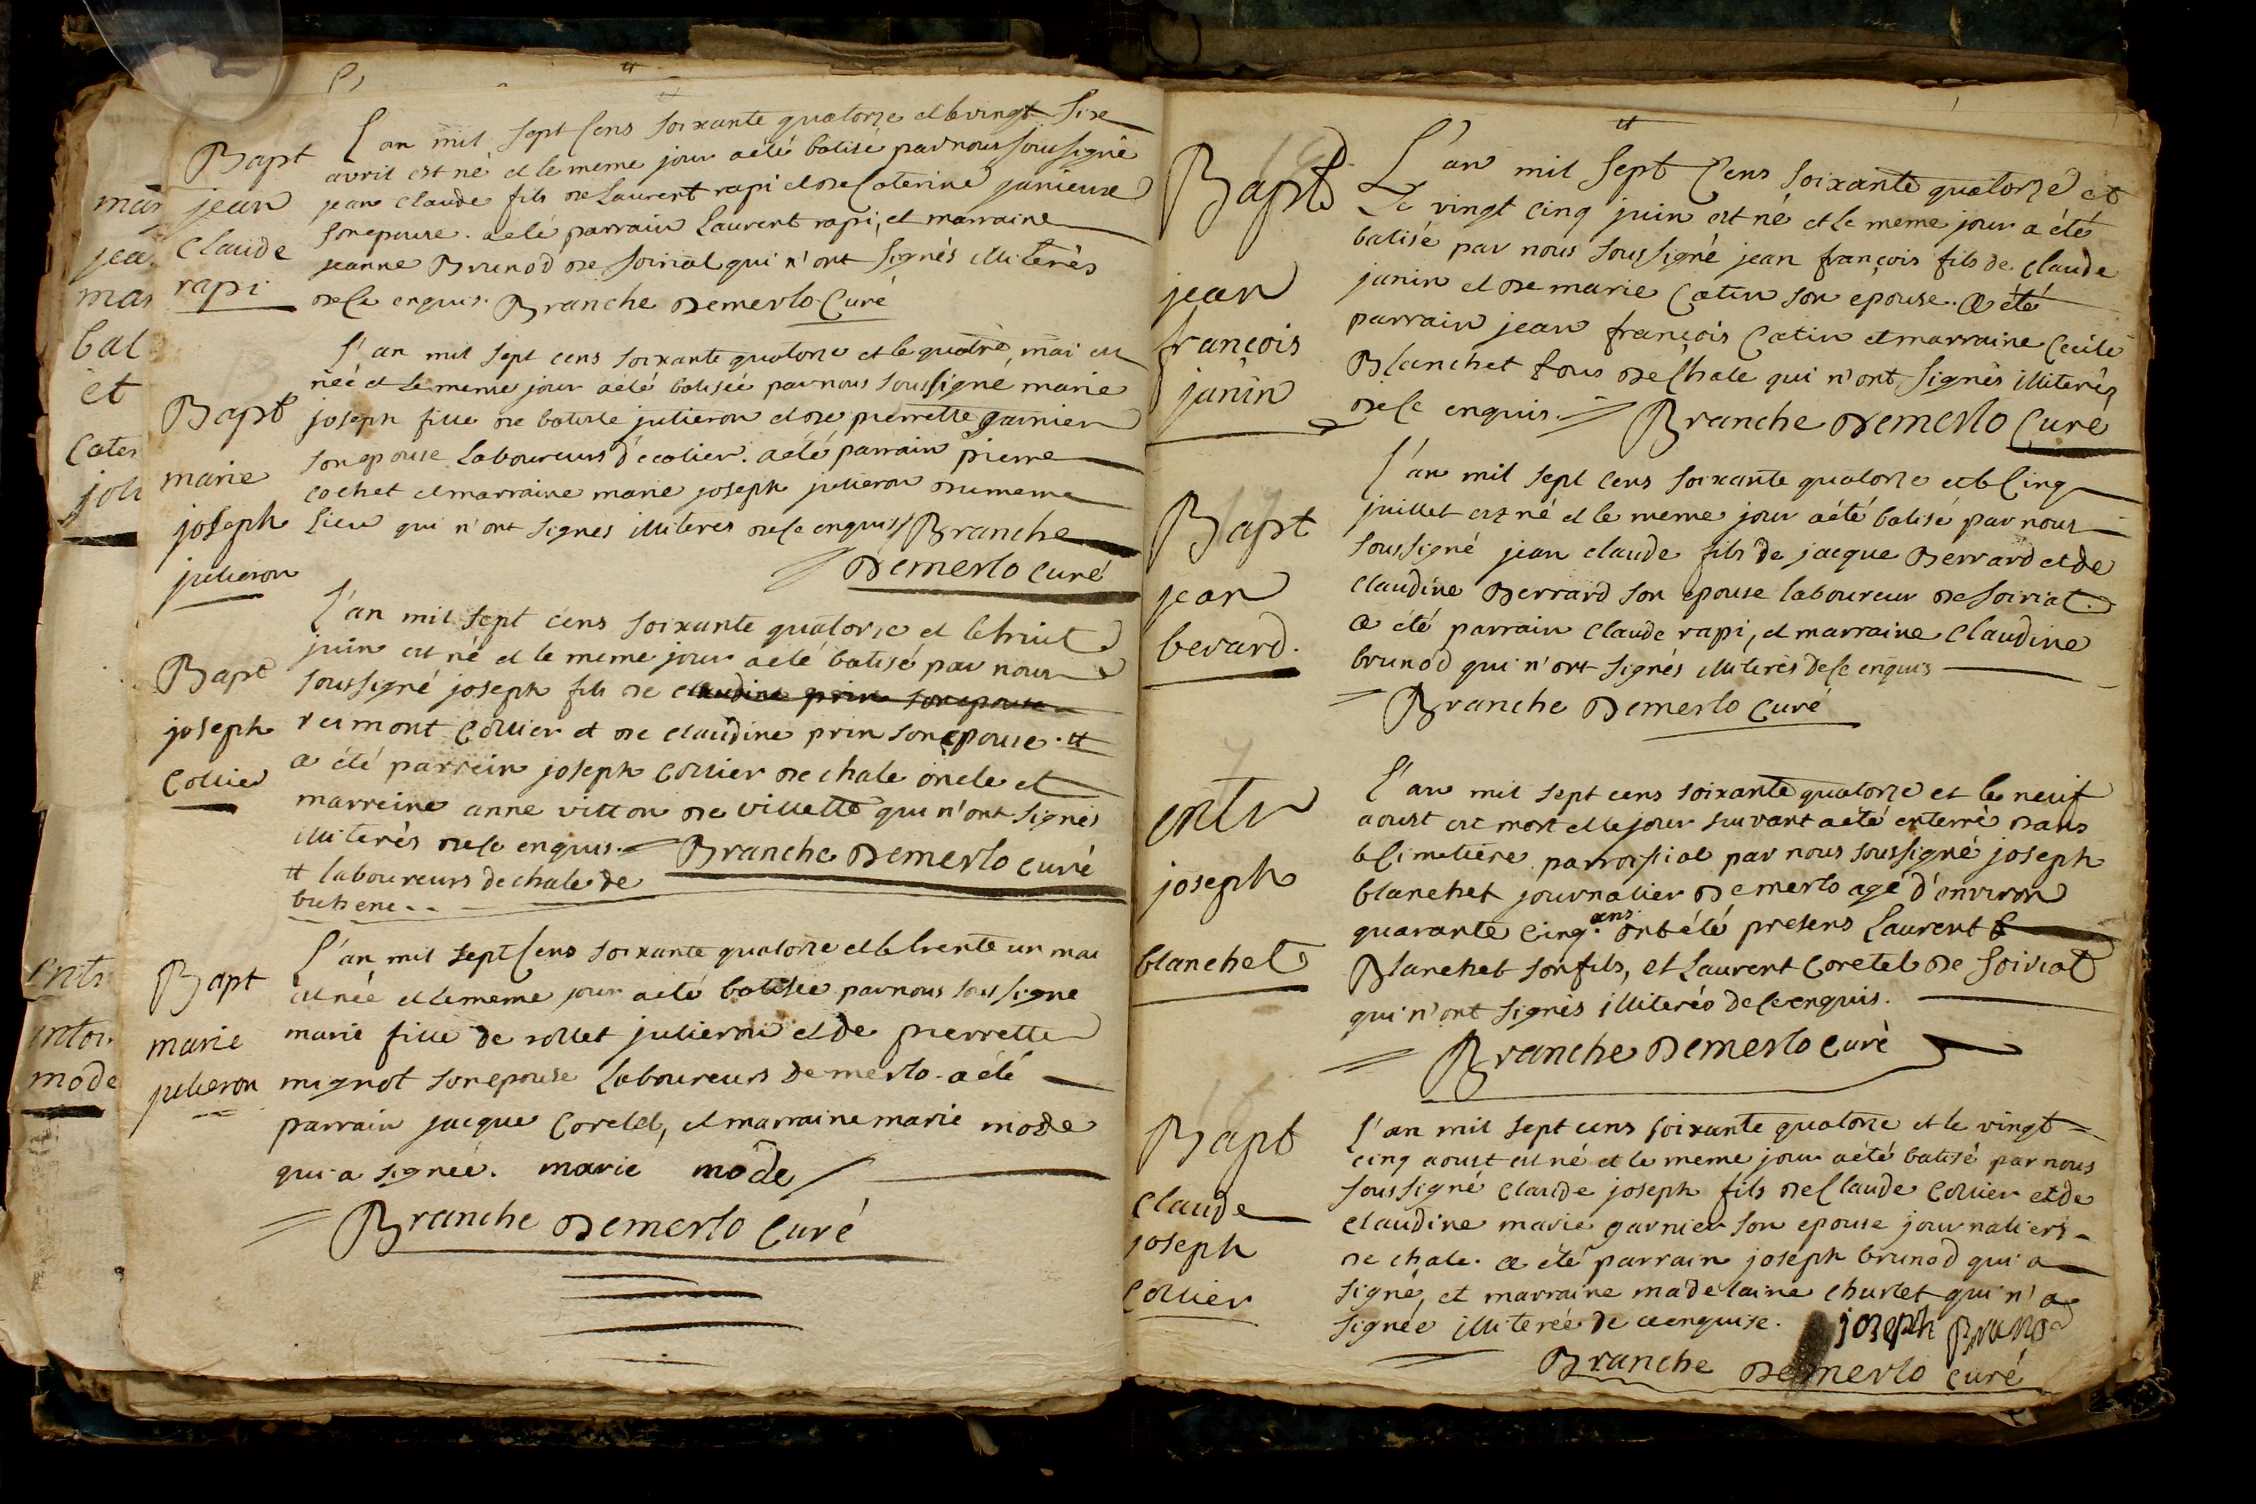 Bapt
jean
claude
rapi
L'an mil sept cens soixante quatorze et le vingt sixe
avril est né et le meme jour a été batisé par nous soussigné
jean claude fils de Laurent rapi et de Caterine janieux
son epouse. a été parrain Laurent rapi, et marraine
jeanne Brunod de soiriat qui n'ont signés illiterés
de ce enquis. Branche de merlo Curé
Bapt
marie
joseph
julieron
L'an mil sept cens soixante quatorze et le quatre mai est
née et le meme jour a été batisée par nous soussigné marie
joseph fille de batiste julieron et de pierrette garnier
son epouse Laboureurs d'ecolier. a été parrain pierre
cochet et marraine marie joseph julieron du meme
lieu qui n'ont signes illiteres de ce enquis // Branche
De merlo curé
Bapt
joseph
Collier
L'an mil sept cens soixante quatorze et le huit
juin est né et le meme jour a été batisé par nous
soussigné joseph fils de claudine prin son epouse
reimont Collier et de claudine prin son epouse. #
a été parrein joseph Collier de chale oncle et
marreine anne vitton de villette qui n'ont signés
illiterés de ce enquis. = Branche De merlo curé
# laboureurs de chale de
buhene..
Bapt
marie
julieron
L'an mil sept Cens soixante quatorze et le trente un mai
est née et le meme jour a été batisée par nous soussigné
marie fille de rollet julieron et de pierrette
mignot son epouse Laboureurs de merlo. a été
parrain jacque Coretel, et marraine marie mode
qui a signée. marie mode /
= Branche De merlo Curé
Bapt
jean
françois
janin
L'an mil sept Cens soixante quatorze et
Le vingt cinq juin est né et le meme jour a été
batisé par nous soussigné jean françois fils de claude
janin et de marie Catin son epouse. a été
parrain jean françois Catin et marraine Cecile
Blanchet tous de Chale qui n'ont signés illiterés
de ce enquis. = Branche De merlo Curé
Bapt
jean
berard.
L'an mil sept cens soixante quatorze et le Cinq
juillet est né et le meme jour a été batisé par nous
soussigné jean claude fils de jacque Berrard et de
claudine Berrard son epouse laboureur de soiriat.
a été parrain claude rapi, et marraine claudine
brunod qui n'ont signés illiterés de ce enquis
= Branche De merlo Curé
entr
joseph
blanchet
L'an mil sept cens soixante quatorze et le neuf
aoust est mort et le jour suivant a été enterré dans
le Cimetière parroissial par nous soussigné joseph
blanchet journalier De merlo agé d'environ
quarante Cinq ans. ont été presens Laurent
Blanchet son fils, et Laurent Coretel de soiriat
qui n'ont signés illiterés de ce enquis.
= Branche De merlo Curé
Bapt
claude
joseph
Collier
L'an mil sept cens soixante quatorze et le vingt
cinq aoust est né et le meme jour a été batisé par nous
soussigné Claude joseph fils de Claude Collier et de
claudine marie garnier son epouse journaliers
de chale. a été parrain joseph brunod qui a
signé, et marraine madelaine churlet qui n'a
signée illiterée de ce enquise. joseph Brunod
Branche De merlo curé